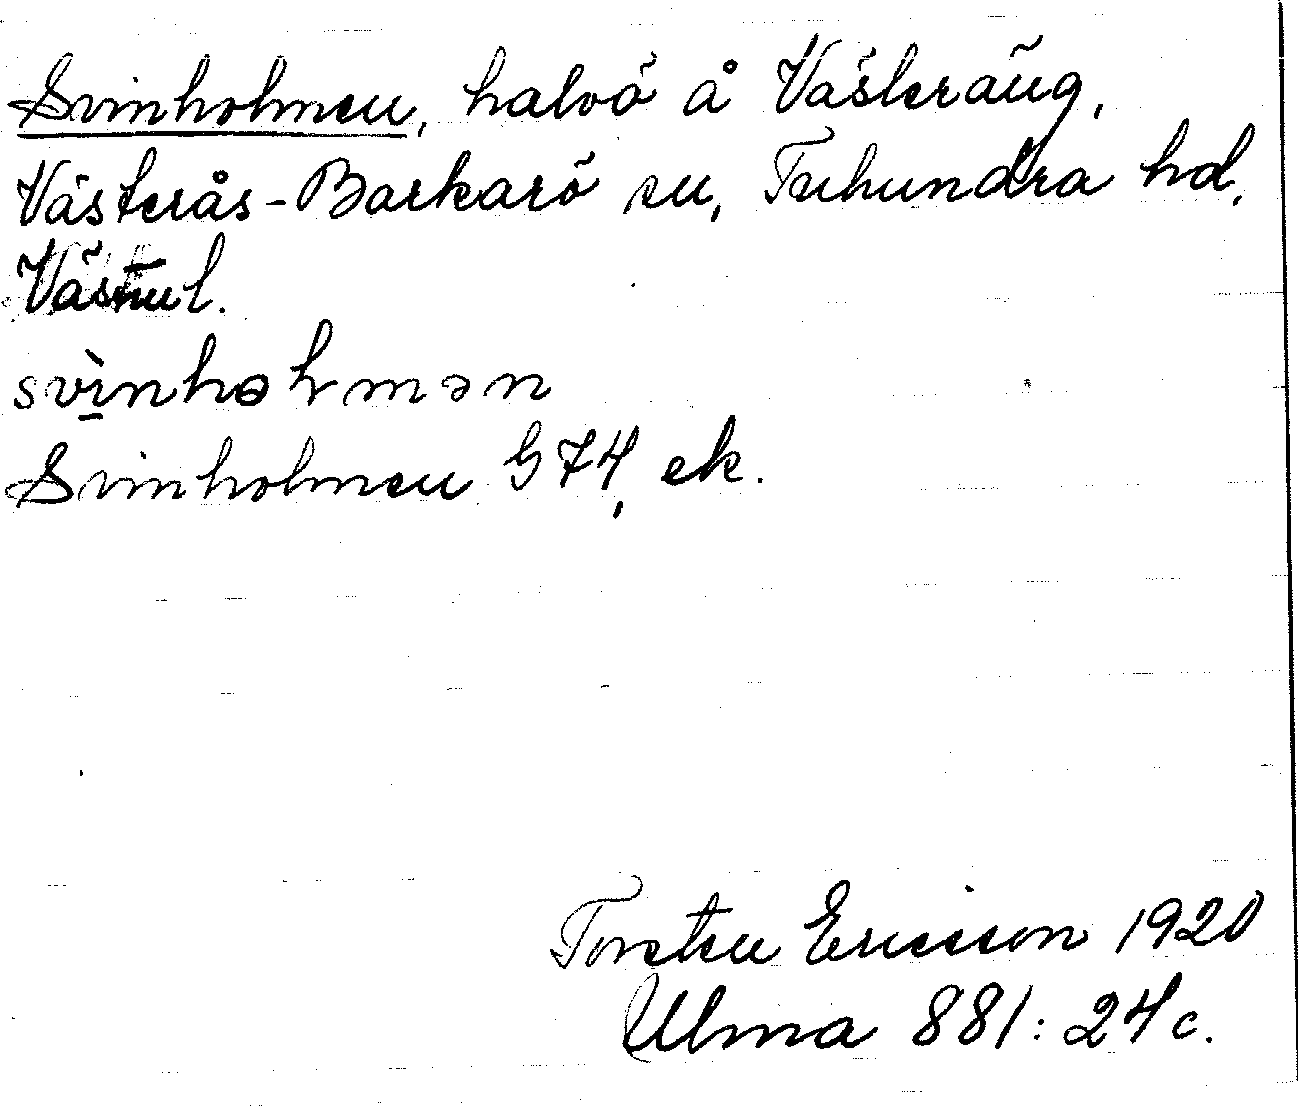 Svinholmen, halvö å Västeräng,
Västerås-Barkarö sn, Tuhundra hd,
Västml.
svìnhɵlmən
Svinholmen G 74, ek.
Torsten Ericsson 1920
Ulma 881:24 c.